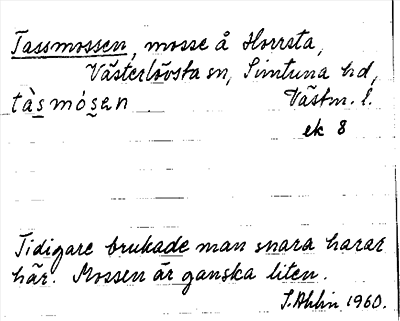 Tassmossen, mosse å Horrsta,
Västerlövsta sn, Simtuna hd,
tàsmósen. Västm. l.
ek 8
Tidigare brukade man snara harar
här. Mossen är ganska liten.
S. Ahlin 1960.